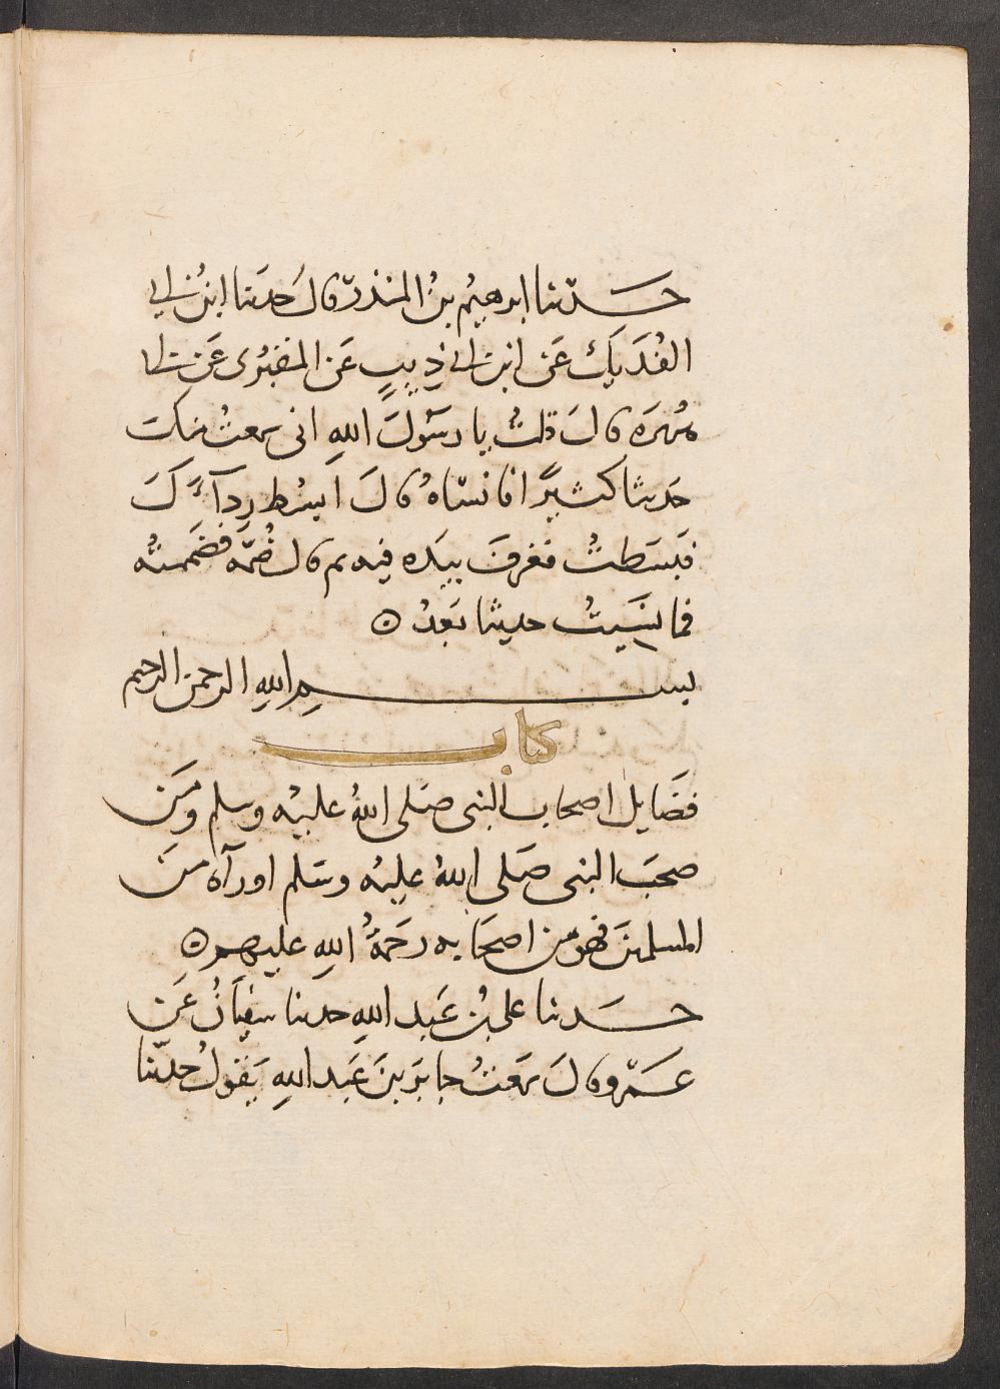 حدثنا ابرهيم بن المنذر قال حدثنا ابن ابي
الفديك عن ابن ابي ذيب عن المقبرى عن ابي
هريرة قال قلت يا رسول الله انى سمعت منك
حديثا كثيرا فانساه قال ابسط رداءك
فبسطت فغرف بيده فيه ثم قال ضمه فضممته
فما نسيت حديثا بعد
بسم الله الرحمن الرحيم
كتاب
فضايل اصحاب النبى صلى الله عليه وسلم ومن
صحب النبى صلى الله عليه وسلم او رآه من
المسلمين فهو من اصحابه رحمة الله عليهم
حدثنا على بن عبد الله حدثنا سفيان عن
عمرو قال سمعت جابر بن عبد الله يقول حدثنا